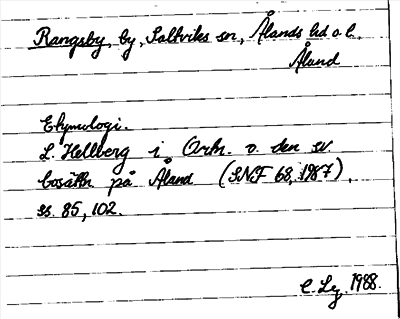 Rangsby, by, Saltviks sn, Ålands hd o. l.
Åland
Etymologi.
L. Hellberg i Ortn. o. den sv
bosättn på Åland (SNF 68, 1987),
ss. 85, 102.
1988.